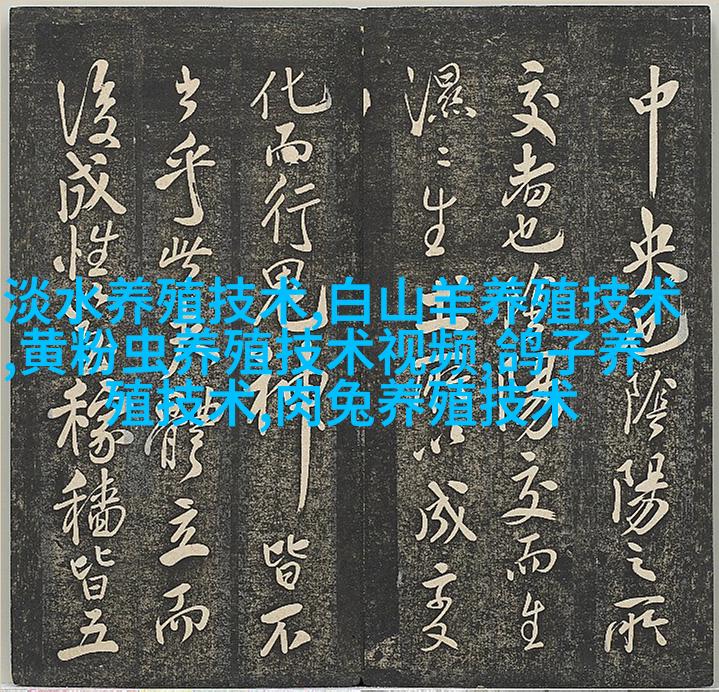 淡水养殖技术,白山羊养殖技术
,黄粉虫养殖技术视频,鸽子养
殖技术,肉兔养殖技术
中央也陰陽之所
交者也陽交而生
濕〻生成变
化而行鬼神皆不
出乎此體立而
後成性稼穡皆五